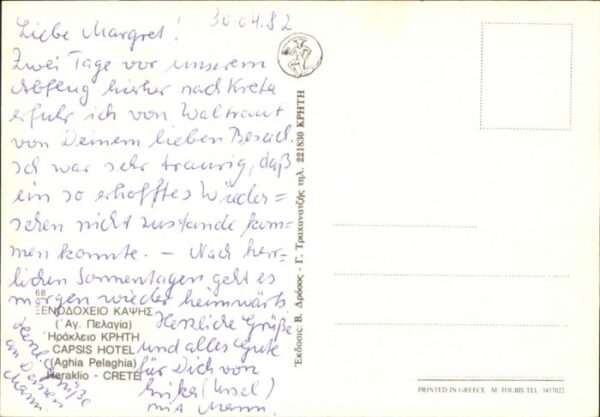 30.04.82
Liebe Margret!
Zwei Tage vor unserem
Abflug hierher nach Kreta
erfuhr ich von Waltraut
von Deinem lieben Besuch.
Ich war sehr traurig, daß
ein so erhofftes Wieder=
sehen nicht zustande kom=
men konnte. – Nach herr=
lichen Sonnentagen geht es
morgen wieder heimwärts.
Herzliche Grüße
und alles Gute
für Dich von
(Ursel)
mit Mann.
Herzl. Grüße
an Deinen
Mann!
68
ΞΕΝΟΔΟΧΕΙΟ ΚΑΨΗΣ
(Άγ. Πελαγία)
Ηράκλειο ΚΡΗΤΗ
CAPSIS HOTEL
(Aghia Pelaghia)
Heraklio - CRETE
Έκδοσις: Β. Δρόσος - Γ. Τραχανατζής τηλ. 221830 ΚΡΗΤΗ
PRINTED IN GREECE M. TOUBIS TEL. 3417022